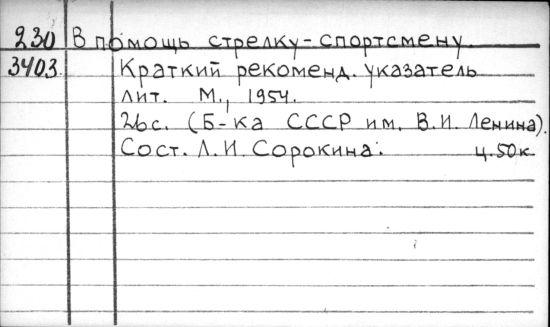 230 В помощь стрелку-спортсмену.
3403. Краткий рекоменд. указатель
лит. М., 1954.
26с. (Б-ка СССР им. В.И. Ленина).
Сост. Л.И. Сорокина. ц.50к.